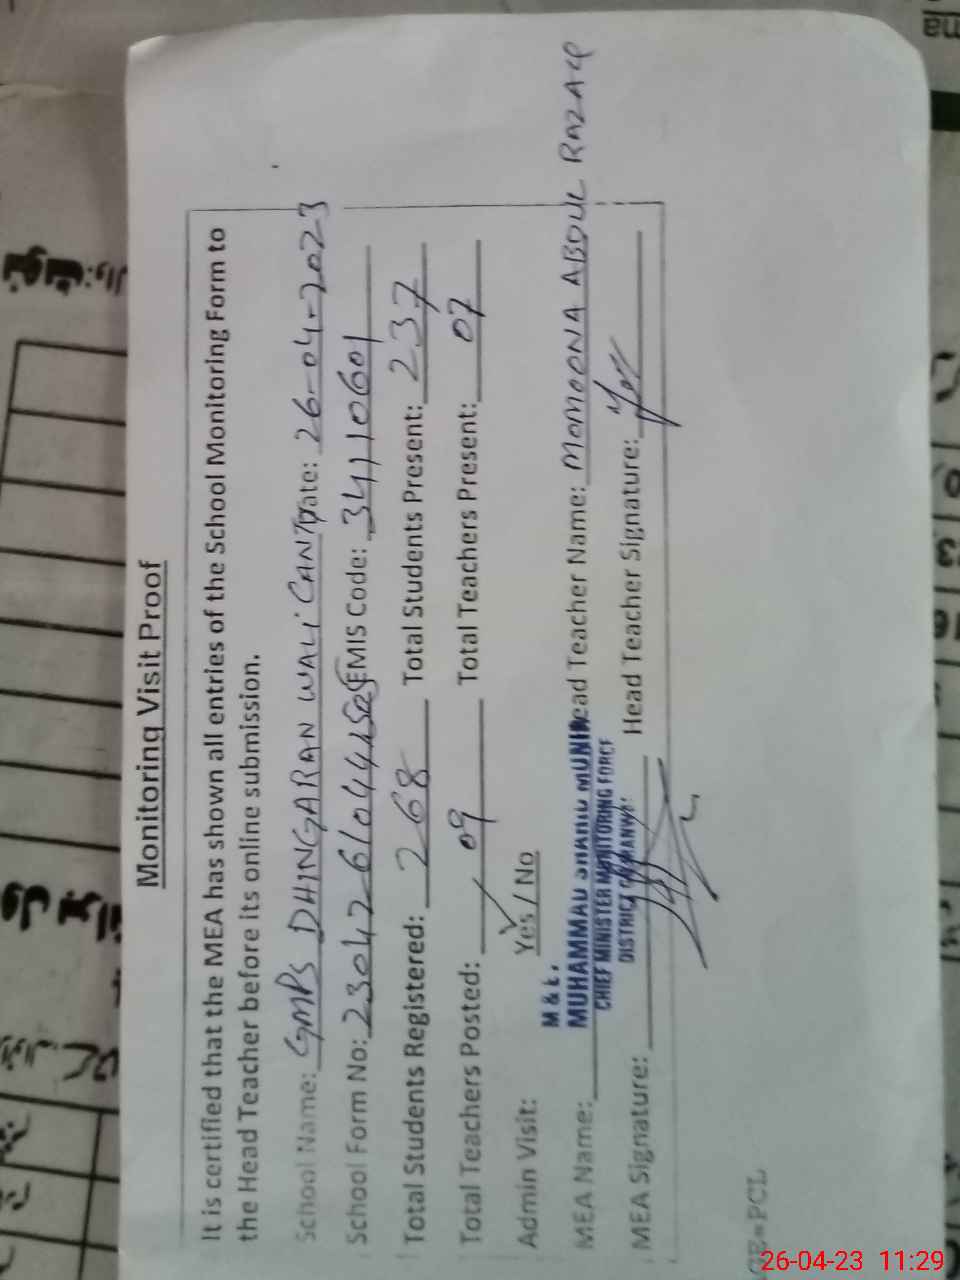 Monitoring Visit Proof
It is certified that the MEA has shown all entries of the School Monitoring Form to
the Head Teacher before its online submission.
School Name: GMPS DHINGARAN WALI CANTT Date: 26-04-2023
School Form No: EMIS Code: 34110601
Total Students Registered: 268 Total Students Present: 237
Total Teachers Posted: 09 Total Teachers Present: 07
Admin Visit: Yes / No
M & E.
MEA Name: MUHAMMAD SHAHID MUNIR Head Teacher Name: MOMOONA ABDUL RAZAQ
CHIEF MINISTER MONITORING FORCE
DISTRICT
MEA Signature: Head Teacher Signature:
26-04-23 11:29